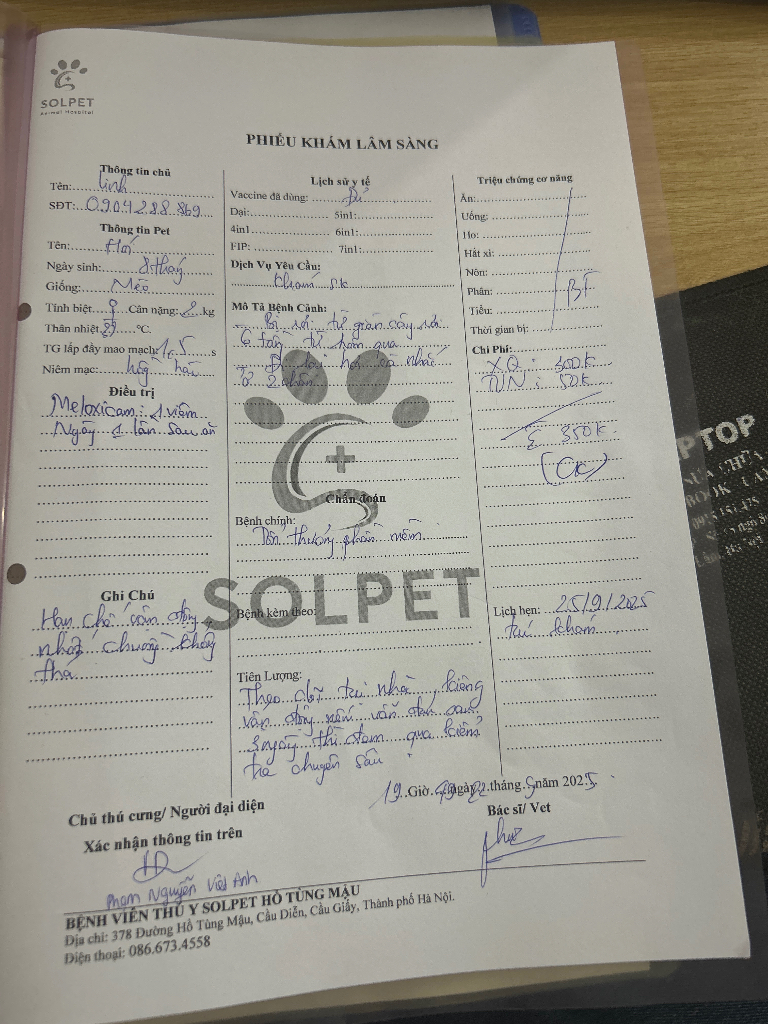 SOLPET
Animal Hospital
PHIẾU KHÁM LÂM SÀNG
Thông tin chủ
Tên: Linh
SĐT: 0904288869
Thông tin Pet
Tên:
Ngày sinh: 8 tháng
Giống: Mèo
Tính biệt: ♀ Cân nặng: 2 kg
Thân nhiệt: °C.
TG lấp đầy mao mạch: 1,5 s
Niêm mạc: hồng hào
Điều trị
Meloxicam: 1 viêm
Ngày 1 lần sau ăn
Ghi Chú
Hạn chế vận động,
nhốt chuồng không
thả
Lịch sử y tế
Vaccine đã dùng: Đủ
Dại: 5in1:
4in1 6in1:
FIP: 7in1:
Dịch Vụ Yêu Cầu:
Khám SK
Mô Tả Bệnh Cảnh:
Bị rơi từ giàn cây rơi
6 tầng từ hôm qua
ở 2 chân
Chẩn đoán
Bệnh chính:
Tổn thương phần mềm
Bệnh kèm theo:
SOLPET
Tiên Lượng:
Theo dõi tại nhà, kiêng
vận động nếu vẫn đau sau
3 ngày thì đem qua kiểm
tra chuyên sâu
Triệu chứng cơ năng
Ăn:
Uống:
Ho:
Hắt xì:
Nôn:
Phân: BT
Tiểu:
Thời gian bị:
Chi Phí:
XQ: 300k
TN: 50k
Σ 350k
(CK)
Lịch hẹn: 25/9/2025
tái khám
19 Giờ 49 ngày 22 tháng 9 năm 2025
Chủ thú cưng/ Người đại diện
Xác nhận thông tin trên
Bác sĩ/ Vet
Phạm Nguyễn Việt Anh
BỆNH VIỆN THÚ Y SOLPET HỒ TÙNG MẬU
Địa chỉ: 378 Đường Hồ Tùng Mậu, Cầu Diễn, Cầu Giấy, Thành phố Hà Nội.
Điện thoại: 086.673.4558
PTOP
SỬA CHỮA